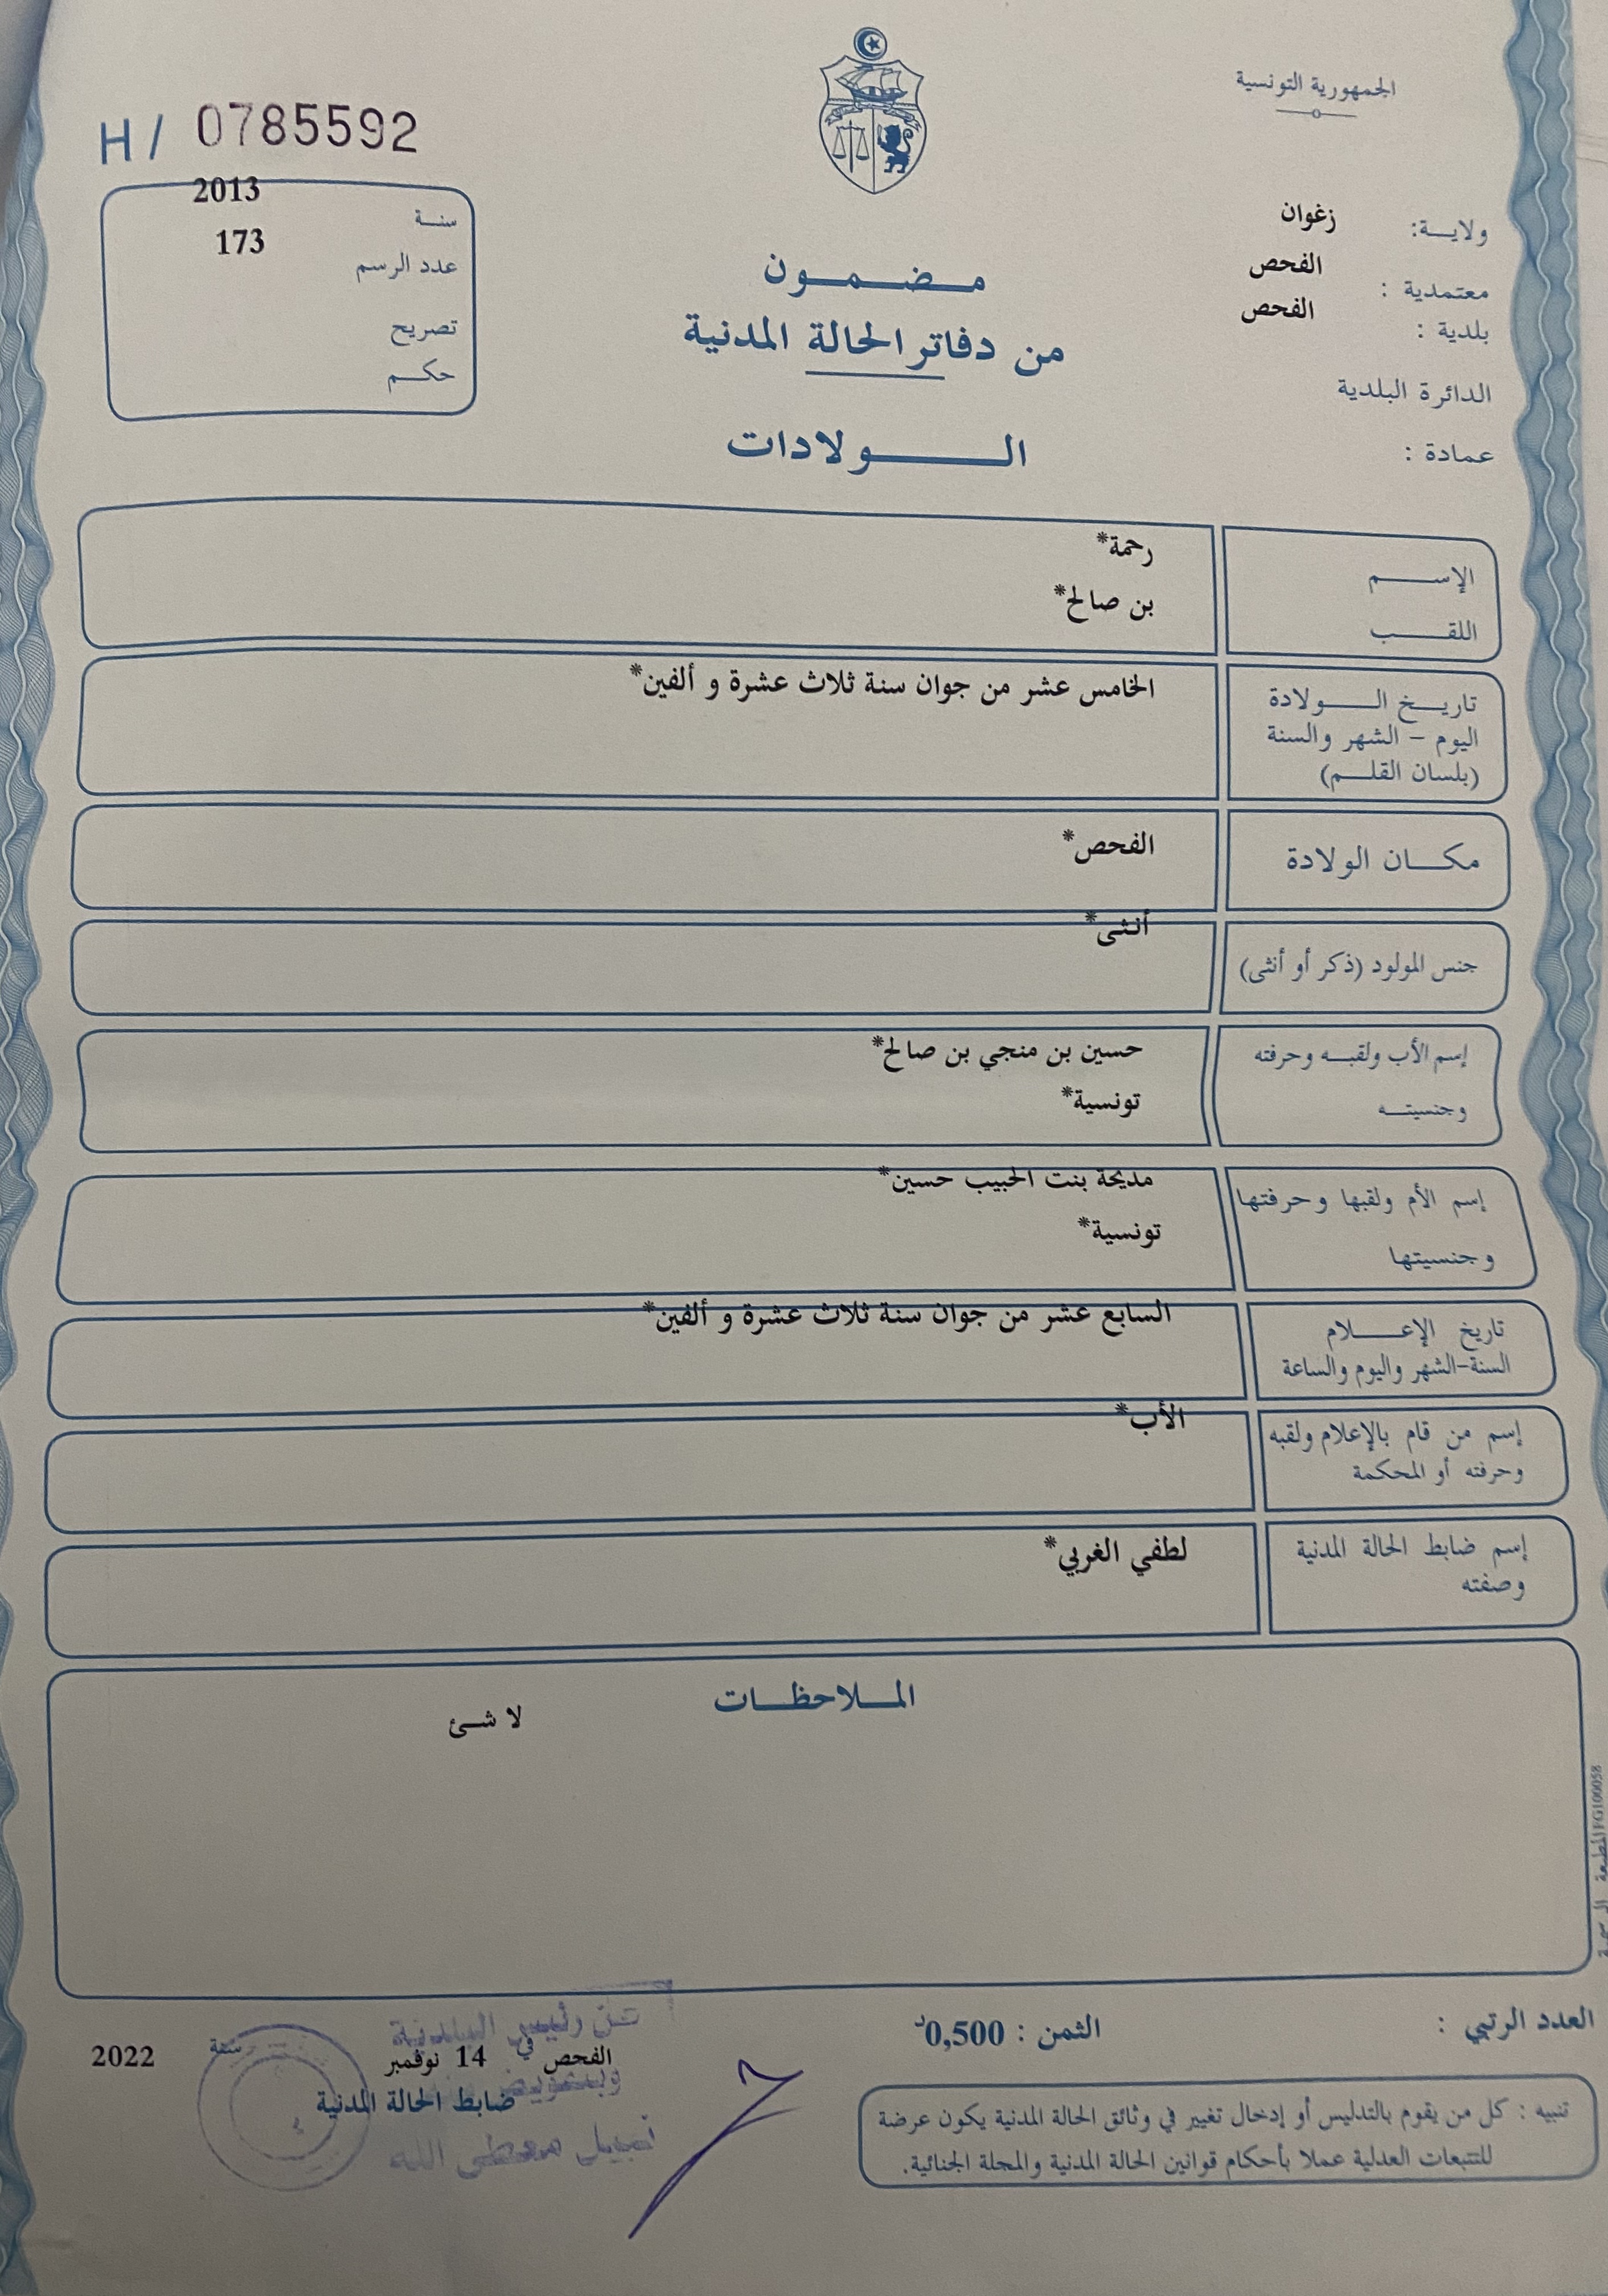 الجمهورية التونسية
H/ 0785592
ولايـة: زغوان
معتمدية : الفحص
بلدية : الفحص
الدائرة البلدية
عمادة :
سنـة 2013
عدد الرسم 173
تصريح
حكـم
مـضـمـون
من دفاتر الحالة المدنية
الـولادات
الإسـم رحمة*
اللقـب بن صالح*
تاريـخ الـولادة الخامس عشر من جوان سنة ثلاث عشرة و ألفين*
اليوم – الشهر والسنة
(بلسان القلـم)
مكـان الولادة الفحص*
جنس المولود (ذكر أو أنثى) أنثى*
إسم الأب ولقبـه وحرفته حسين بن منجي بن صالح*
وجنسيتـه تونسية*
إسم الأم ولقبها وحرفتها مديحة بنت الحبيب حسين*
وجنسيتها تونسية*
تاريخ الإعـلام السابع عشر من جوان سنة ثلاث عشرة و ألفين*
السنة-الشهر واليوم والساعة
إسم من قام بالإعلام ولقبه الأب*
وحرفته أو المحكمة
إسم ضابط الحالة المدنية لطفي الغربي*
وصفته
المـلاحظـات
لا شئ
المطبعة الرسمية FG100058
العدد الرتبي :
الثمن : 0,500د
عن رئيس البلدية
الفحص في 14 نوفمبر سنة 2022
وبتفويض
ضابط الحالة المدنية
نبيل معطى الله
تنبيه : كل من يقوم بالتدليس أو إدخال تغيير في وثائق الحالة المدنية يكون عرضة
للتتبعات العدلية عملا بأحكام قوانين الحالة المدنية والمجلة الجنائية.